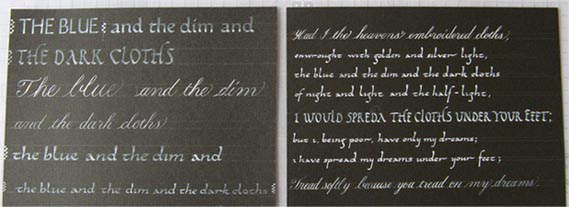 THE BLUE and the dim and
THE DARK CLOTHS
The blue and the dim
and the dark cloths
the blue and the dim and
the blue and the dim and the dark cloths
Had I the heavens embroidered cloths,
enwrought with golden and silver light,
the blue and the dim and the dark cloths
of night and light and the half-light,
I WOULD SPREDA THE CLOTHS UNDER YOUR FEET;
but I, being poor, have only my dreams;
I have spread my dreams under your feet;
Tread softly because you tread on my dreams.